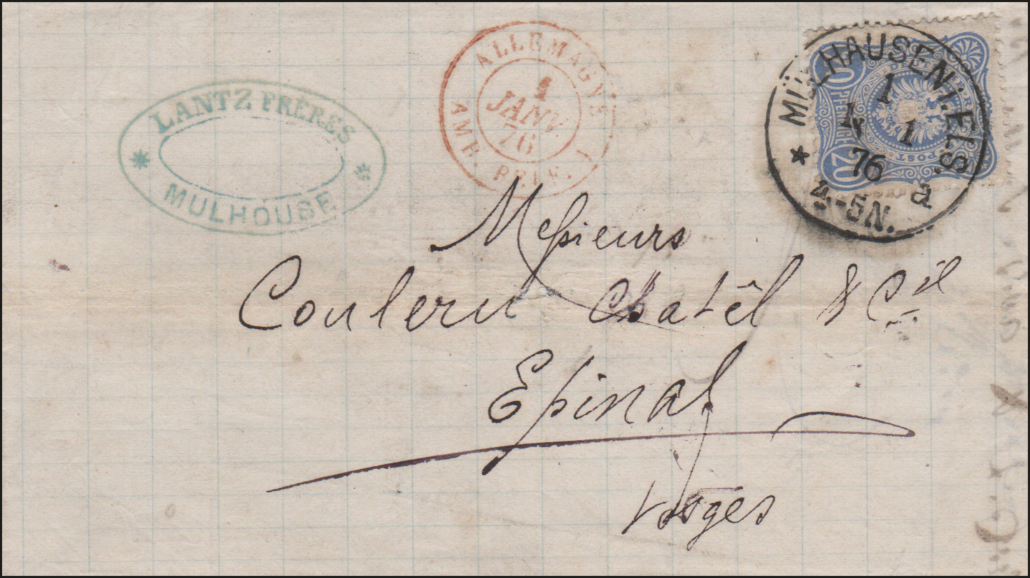 LANTZ FRÈRES
MULHOUSE
ALLEMAGNE
1
JANV.
76
AMB.
MÜLHAUSEN I. ELS.
1
1
76
4-5N.
a
20
20
POST
Messieurs
Couleru Chatêl & Cie
Epinal
Vosges